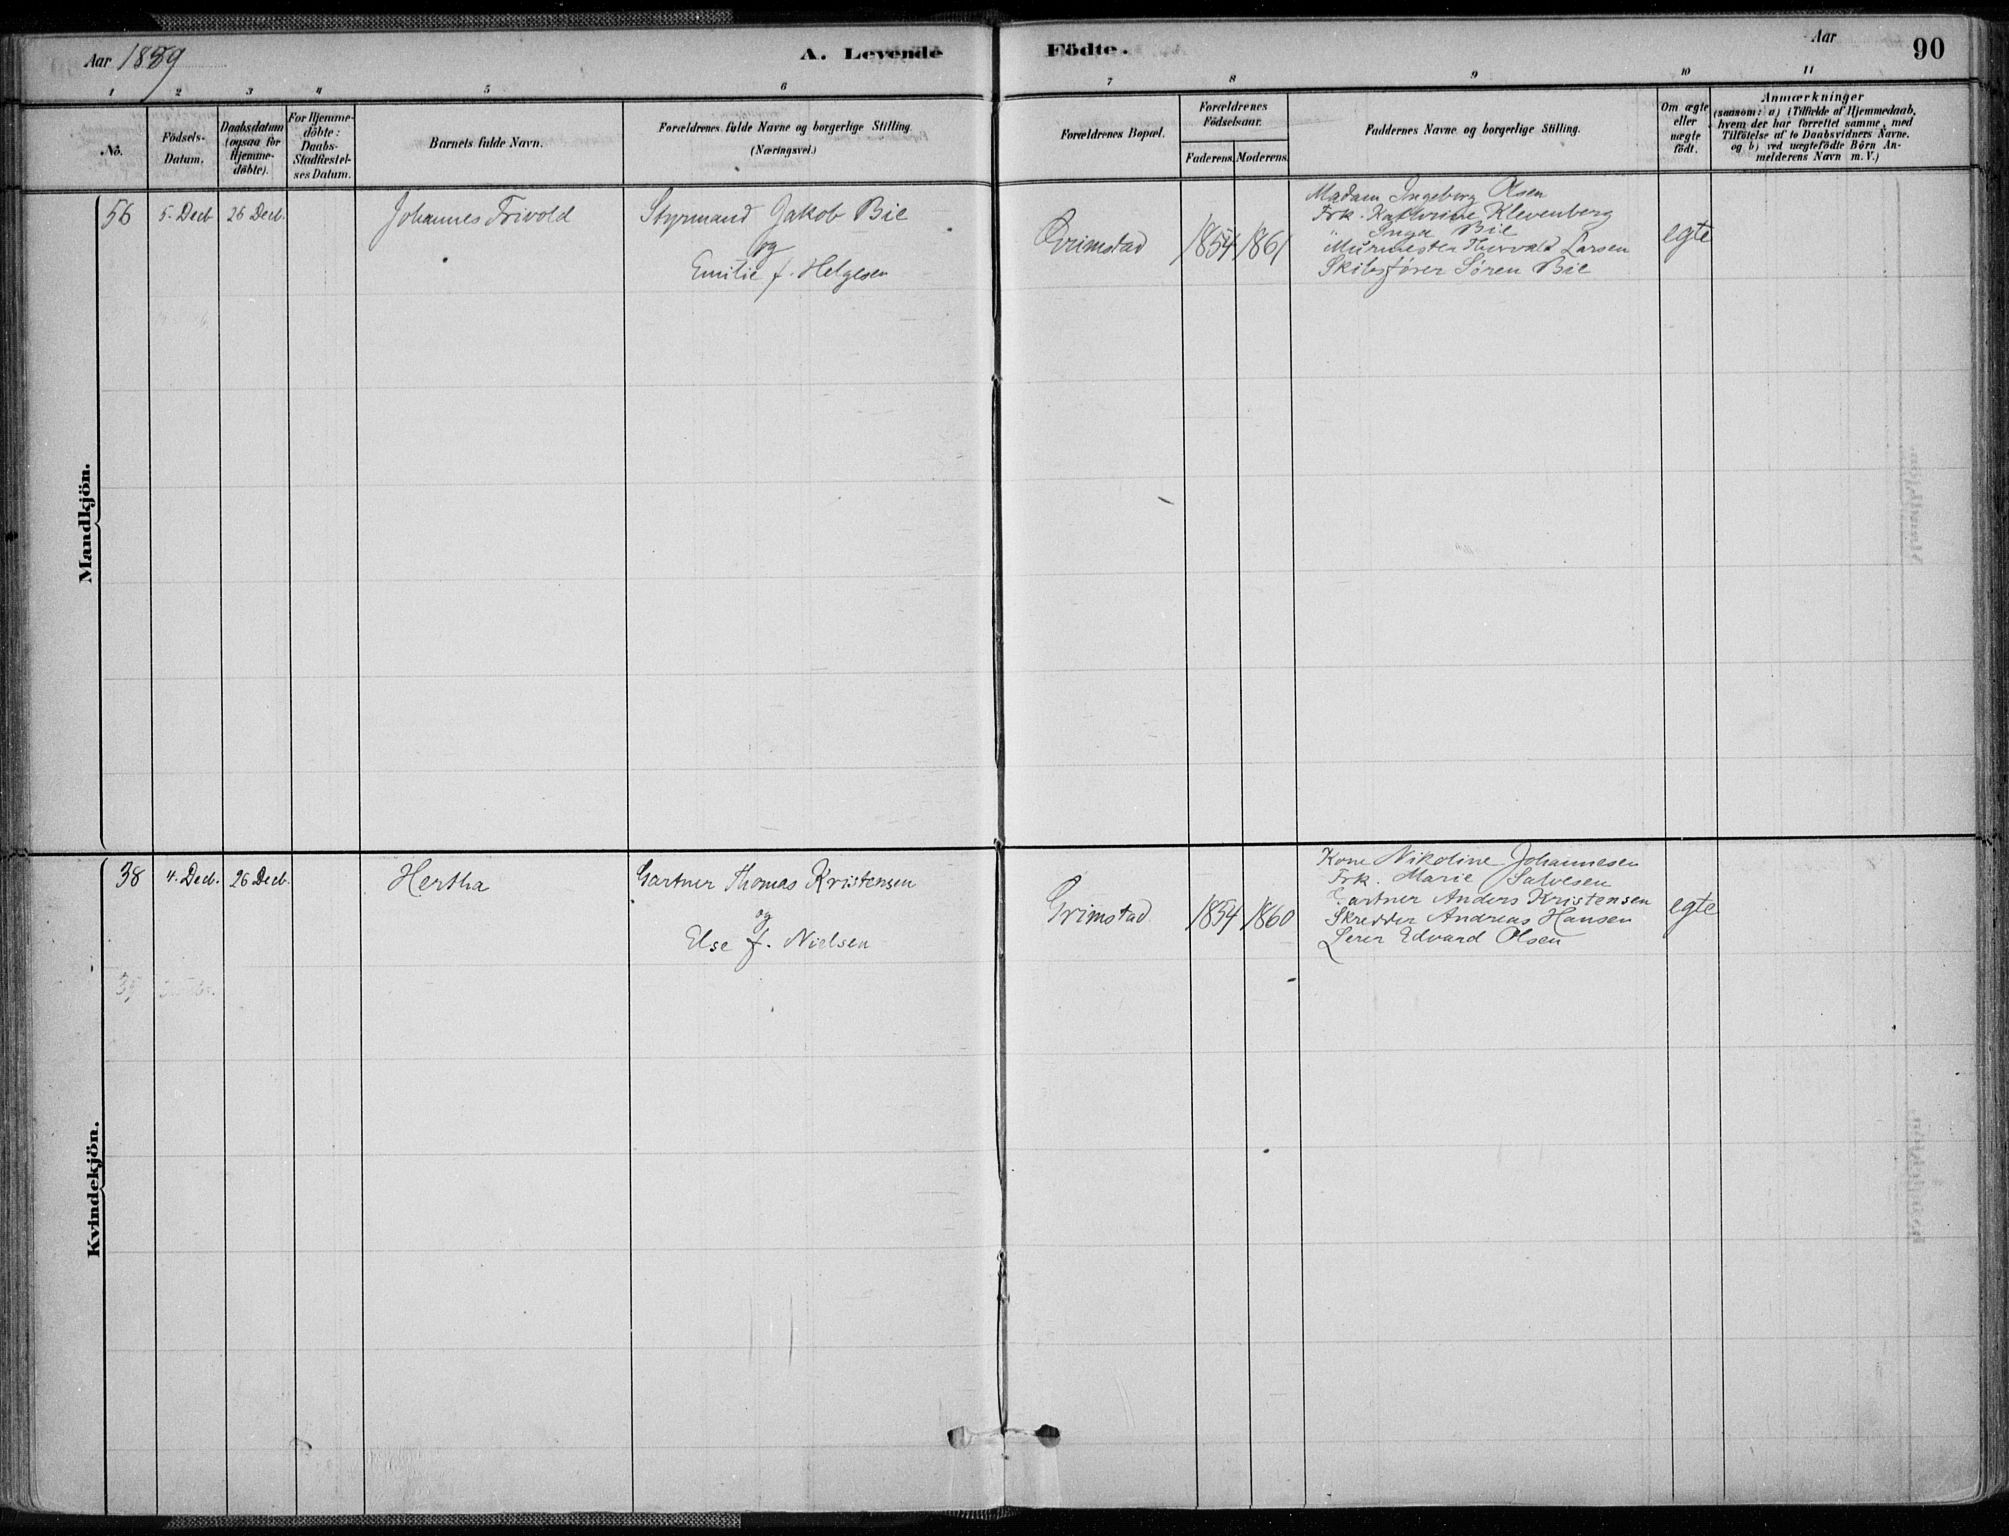 Aar 1889
A. Levende Födte.
Aar
90
1 2 3 4 5 6 7 8 9 10 11
No.
Födsels-
Datum.
Daabsdatum
(ogsaa for
Hjemme-
döbte).
For Hjemme-
döbte:
Daabs-
Stadfæstel-
ses Datum.
Barnets fulde Navn.
Forældrenes fulde Navne og borgerlige Stilling.
(Næringsvei.)
Forældrenes Bopæl.
Forældrenes
Födselsaar.
Faderens. Moderens.
Faddernes Navne og borgerlige Stilling.
Om ægte
eller
uægte
födt.
Anmærkninger
(saasom: a) i Tilfælde af Hjemmedaab,
hvem der har forrettet samme, med
Tilföielse af to Daabsvidners Navne.
og b) ved uægtefödte Börn An-
melderens Navn m. V.)
Mandkjön.
56
5. Decb
26 Decb.
Johannes Frivold
Styrmand Jakob Bie
og
Emilie f. Helgesen
Grimstad
1854
1861
Madam Ingeborg Olsen
Frk. Kathrine Klevenberg
" Inga Bie
Murmester Thorvald Larsen
Skibsfører Søren Bie
egte
Kvindekjön.
38
4. Decb.
26 Decb.
Hertha
Gartner Thomas Kristensen
og
Else f. Nielsen
Grimstad
1854
1860
Kone Nikoline Johannesen
Frk. Marie Salvesen
Gartner Anders Kristensen
Skredder Andreas Hansen
Lerer Edvard Olsen
egte
39